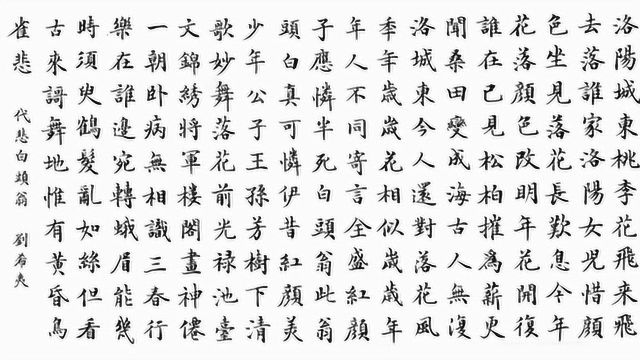 洛陽城東桃李花飛來飛
去落誰家洛陽女兒惜顏
色坐見落花長歎息今年
花落顏色改明年花開復
誰在已見松柏摧爲薪更
聞桑田變成海古人無復
洛城東今人還對落花風
秊年歲歲花相似歲歲年
年人不同寄言全盛紅顏
子應憐半死白頭翁此翁
頭白真可憐伊昔紅顏美
少年公子王孫芳樹下清
歌妙舞落花前光禄池臺
文錦綉將軍樓閣畫神僊
一朝卧病無相識三春行
樂在誰邊宛轉蛾眉能幾
時須臾鶴髮亂如絲但看
古來謌舞地惟有黄昏鳥
雀悲
代悲白頭翁 劉希夷